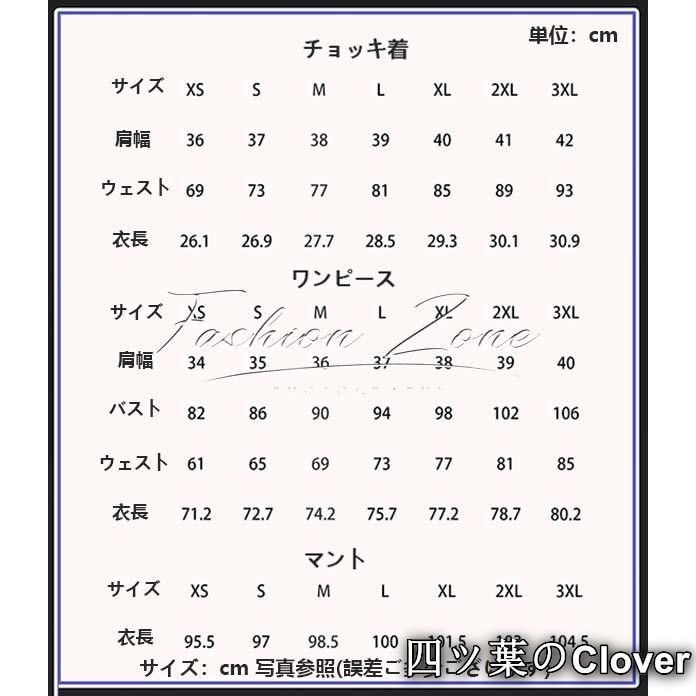 単位：cm
チョッキ着
サイズ XS S M L XL 2XL 3XL
肩幅 36 37 38 39 40 41 42
ウェスト 69 73 77 81 85 89 93
衣長 26.1 26.9 27.7 28.5 29.3 30.1 30.9
ワンピース
サイズ XS S M L XL 2XL 3XL
Fashion Zone
肩幅 34 35 36 37 38 39 40
バスト 82 86 90 94 98 102 106
ウェスト 61 65 69 73 77 81 85
衣長 71.2 72.7 74.2 75.7 77.2 78.7 80.2
マント
サイズ XS S M L XL 2XL 3XL
衣長 95.5 97 98.5 100 101.5 103 104.5
サイズ：cm 写真参照(誤差ご
四ツ葉のClover